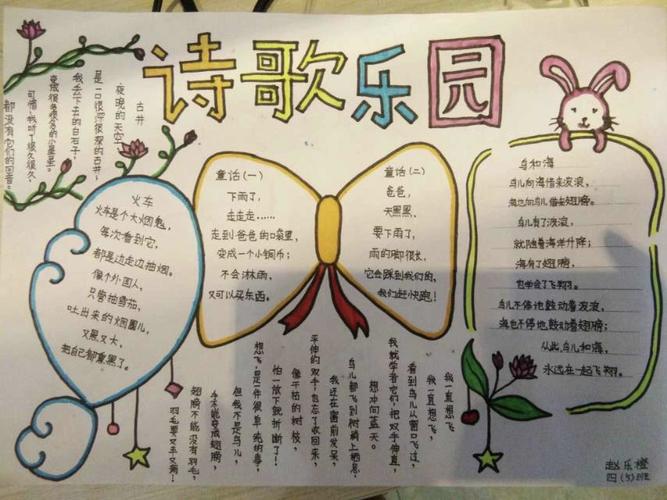 诗歌乐园
古井
夜晚的天空，
是一口很深很深的古井，
我丢下去的白石子，
变成很多很多的小星星。
可惜，我听了很久很久，
都没有它们的回音。
火车
火车是个大烟鬼，
每次看到它，
都是边走边抽烟。
像个外国人，
只管抽雪茄，
吐出来的烟圈儿，
又黑又大，
把自己都熏黑了。
童话（一）
下雨了，
走走走……
走到爸爸的口袋里，
变成一个小铜币；
不会淋雨，
又可以买东西。
童话（二）
爸爸，
天黑黑，
要下雨了，
雨的脚很长，
它会踩到我们的，
我们赶快跑！
鸟和海
鸟儿向海借来波浪，
海也向鸟儿借来翅膀。
鸟儿有了波浪，
就随着海洋升降；
海有了翅膀，
也学会了飞翔。
鸟儿不停地鼓动着波浪，
海也不停地鼓动着翅膀；
从此，鸟儿和海，
永远在一起飞翔。
我一直想飞
我一直想飞，
看到鸟儿从窗口飞过，
我就学者它们，把双手伸直，
想冲向蓝天。
鸟儿都飞到树梢上栖息，
我还在窗前发呆，
平伸的双手，也忘了收回来，
像干枯的树枝，
怕一放下就折断了！
想飞，是一件很单纯的事，
但我不是鸟儿，
手不能变成翅膀，
翅膀不能没有羽毛，
羽毛要又丰又满！
赵乐橙
四（5）班